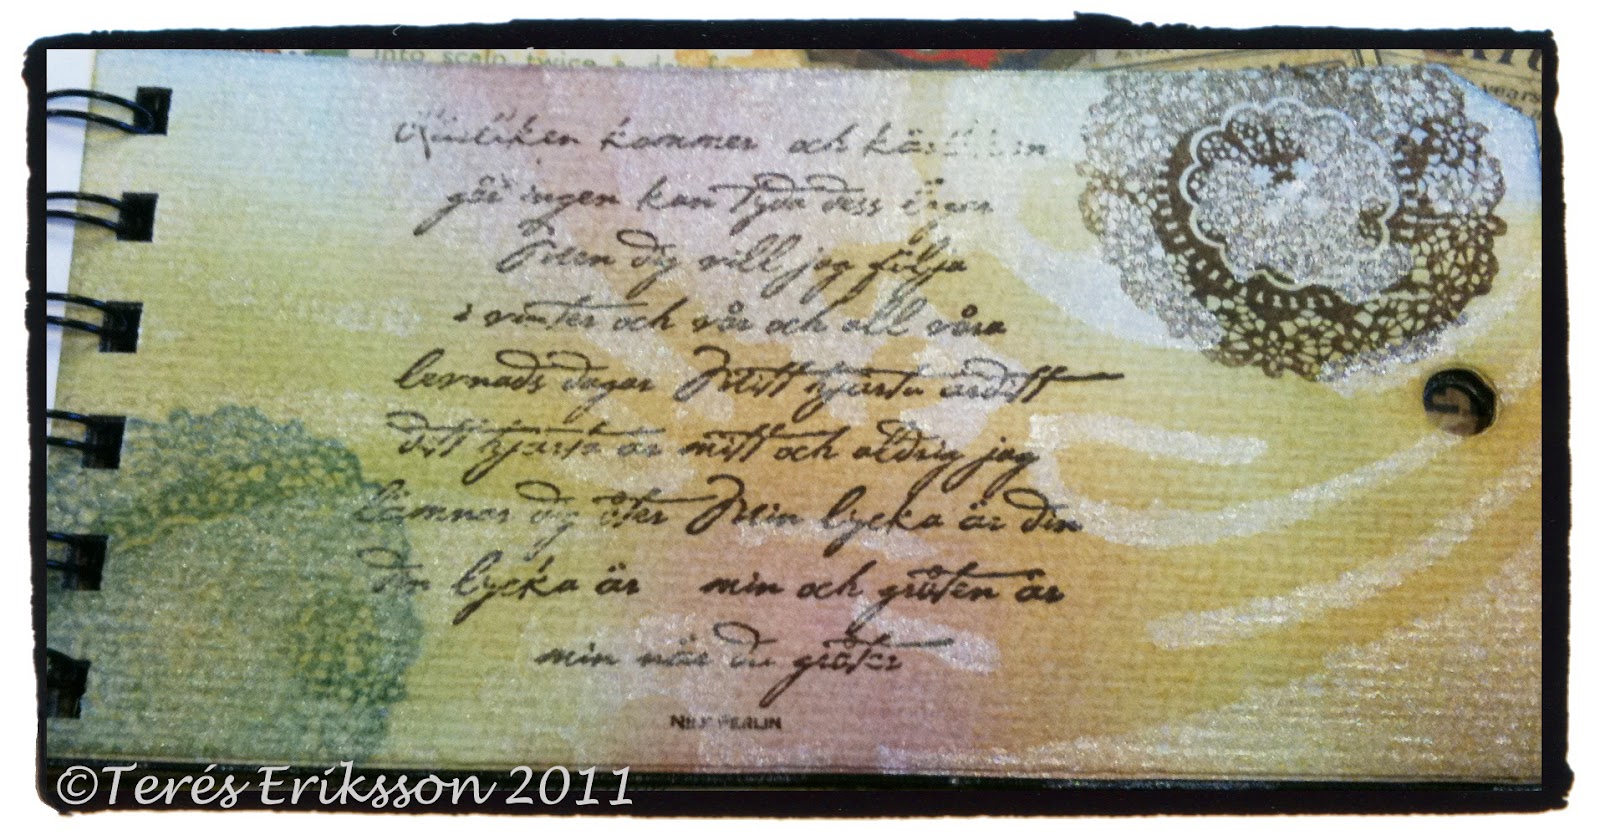 into scalp twice a day for
years
Kärleken kommer och kärleken
går ingen kan tyda dess lagar
Men dig vill jag följa
i vinter och vår och all våra
levnads dagar Mitt hjärta är ditt
ditt hjärta är mitt och aldrig jag
lämnar dig åter Min lycka är din
din lycka är min och gråten är
min när du gråter
NILS FERLIN
©Terés Eriksson 2011